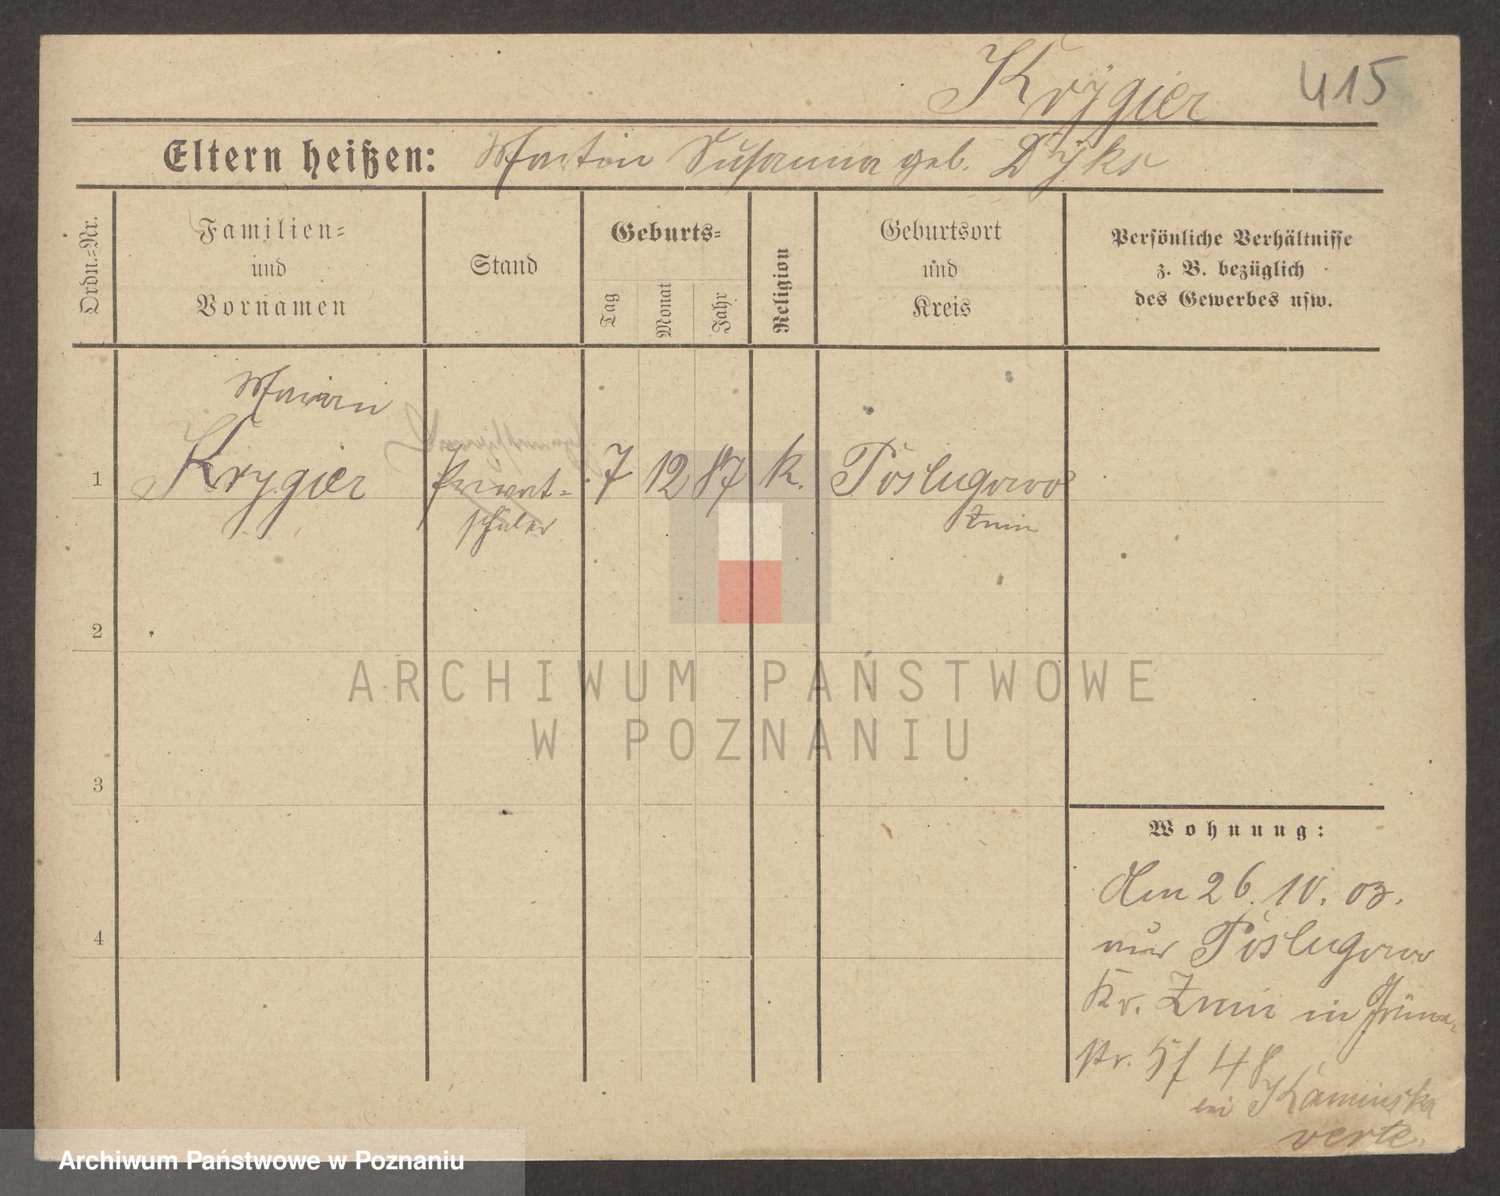 Krygier 415
Eltern heißen: Martin Susanna geb. Dyks
Ordn.-Nr.
Familien-
und
Vornamen
Stand
Geburts-
Tag
Monat
Jahr
Religion
Geburtsort
und
Kreis
Persönliche Verhältnisse
z. B. bezüglich
des Gewerbes usw.
Marian
1 Krygier Privat- 7 12 87 k. Poslugowo
schüler Znin
2
3
4
Wohnung:
den 26. 10. 03.
aus Poslugowo
Kr. Znin in
str. Hf 48
bei Kaminska
verte.
ARCHIWUM PAŃSTWOWE
W POZNANIU
Archiwum Państwowe w Poznaniu